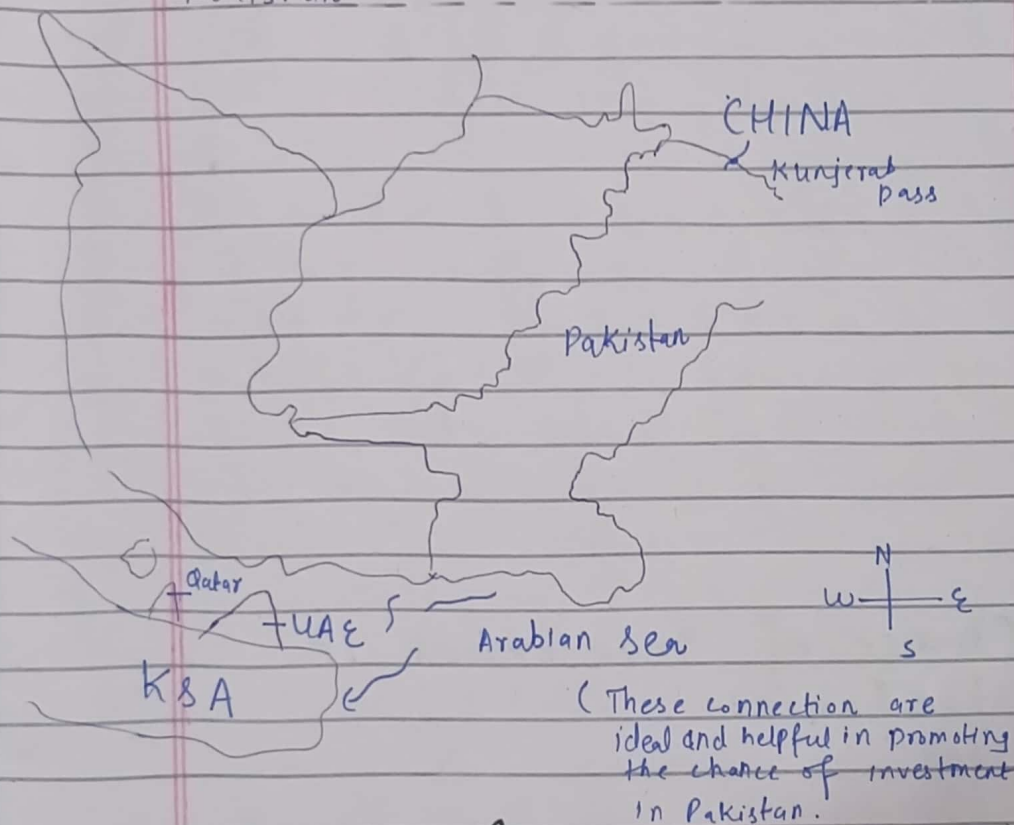 CHINA
Kunjerab
pass
Pakistan
N
W
E
S
Qatar
UAE
Arabian sea
KSA
( These connection are
ideal and helpful in promoting
the chance of investment
in Pakistan.